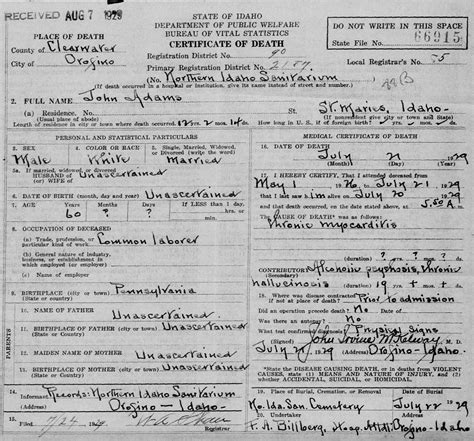 RECEIVED AUG 7 1929
STATE OF IDAHO
DEPARTMENT OF PUBLIC WELFARE
BUREAU OF VITAL STATISTICS
CERTIFICATE OF DEATH
DO NOT WRITE IN THIS SPACE
State File No. 66915
PLACE OF DEATH
County of Clearwater
City of Orofino
Registration District No. 90
Primary Registration District No. 2157
Local Registrar's No. 75
(No. Northern Idaho Sanitarium
(If death occurred in a hospital or institution, give its name instead of street and number)
2. FULL NAME John Adams
(a) Residence. No. St. Maries, Idaho
(Usual place of abode) (If nonresident give city or town and State)
Length of residence in city or town where death occurred yrs. mos. ds. How long in U. S., if of foreign birth? yrs. mos. ds.
PERSONAL AND STATISTICAL PARTICULARS
3. SEX
Male
4. COLOR OR RACE
White
5. Single, Married, Widowed, or Divorced (write the word)
Married
5a. If married, widowed, or divorced
HUSBAND of
(or) WIFE of
Unascertained
6. DATE OF BIRTH (month, day and year) Unascertained
7. AGE Years Months Days IF LESS than 1 day, hrs. or min.
60 ?
8. OCCUPATION OF DECEASED
(a) Trade, profession, or particular kind of work
Common laborer
(b) General nature of industry, business, or establishment in which employed (or employer)
(c) Name of employer
9. BIRTHPLACE (city or town)
(State or country)
Pennsylvania
PARENTS
10. NAME OF FATHER
Unascertained
11. BIRTHPLACE OF FATHER (city or town)
(State or country)
Unascertained
12. MAIDEN NAME OF MOTHER
Unascertained
13. BIRTHPLACE OF MOTHER (city or town)
(State or country)
Unascertained
14. Informant Records: Northern Idaho Sanitarium
(Address) Orofino - Idaho
15. Filed 7/24 1929
MEDICAL CERTIFICATE OF DEATH
16. DATE OF DEATH
July 21 1929
17. I HEREBY CERTIFY, That I attended deceased from
May 1 1926 to July 21 1929
that I last saw him alive on July 20 1929
and that death occurred, on the date stated above, at 5.50 A m.
The CAUSE OF DEATH was as follows:
Chronic myocarditis
CONTRIBUTORY Alcoholic psychosis, chronic
(Secondary)
hallucinosis (duration) 19 yrs. + mos. + ds.
18. Where was disease contracted
if not at place of death? Prior to admission
Did an operation precede death? No Date of
Was there an autopsy? No
What test confirmed diagnosis? Physical signs
(Signed) John Irvine McKelway, M. D.
July 1929 Orofino - Idaho.
*State the DISEASE CAUSING DEATH, or in deaths from VIOLENT CAUSES, state (1) MEANS AND NATURE OF INJURY, and (2) whether ACCIDENTAL, SUICIDAL, or HOMICIDAL.
19. Place of Burial, Cremation, or Removal Date of Burial
No. Ida. San. Cemetery July 22 1929
20. Undertaker Address
F. A. Billberg, Hosp. Attdt. Orofino-Idaho